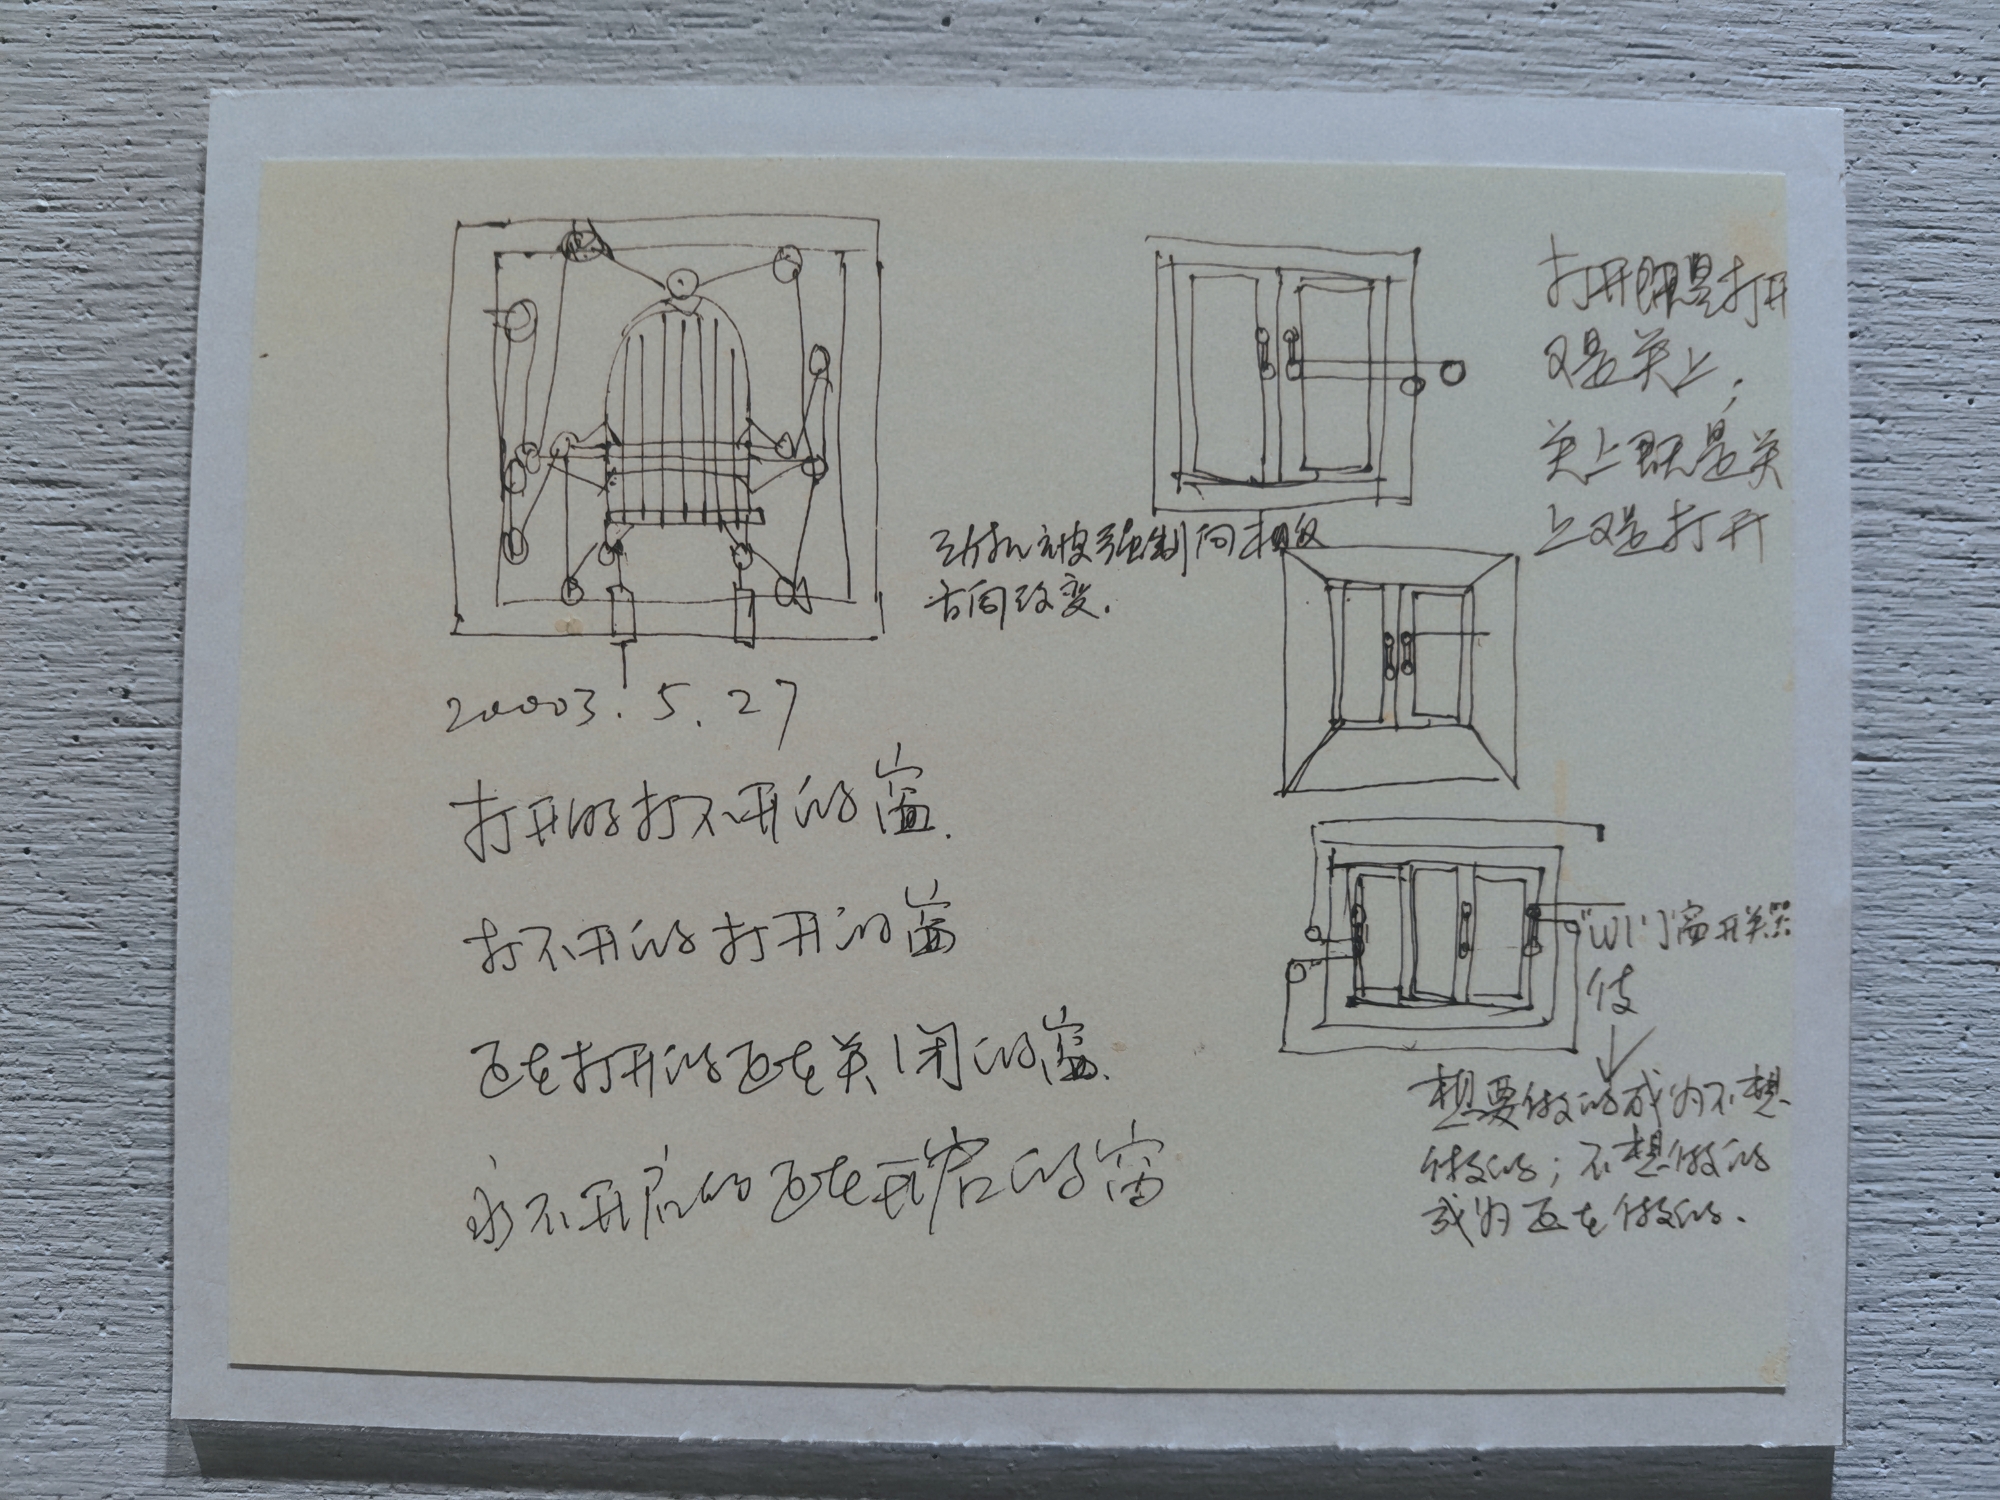 打开既是打开
又是关上；
关上既是关
上又是打开
动机被强制向相反
方向改变.
20003.5.27
打开的打不开的窗.
打不开的打开的窗
正在打开的正在关闭的窗.
永不开启的正在开启的窗
门窗开关
做
想要做的成为不想
做的；不想做的
成为正在做的.